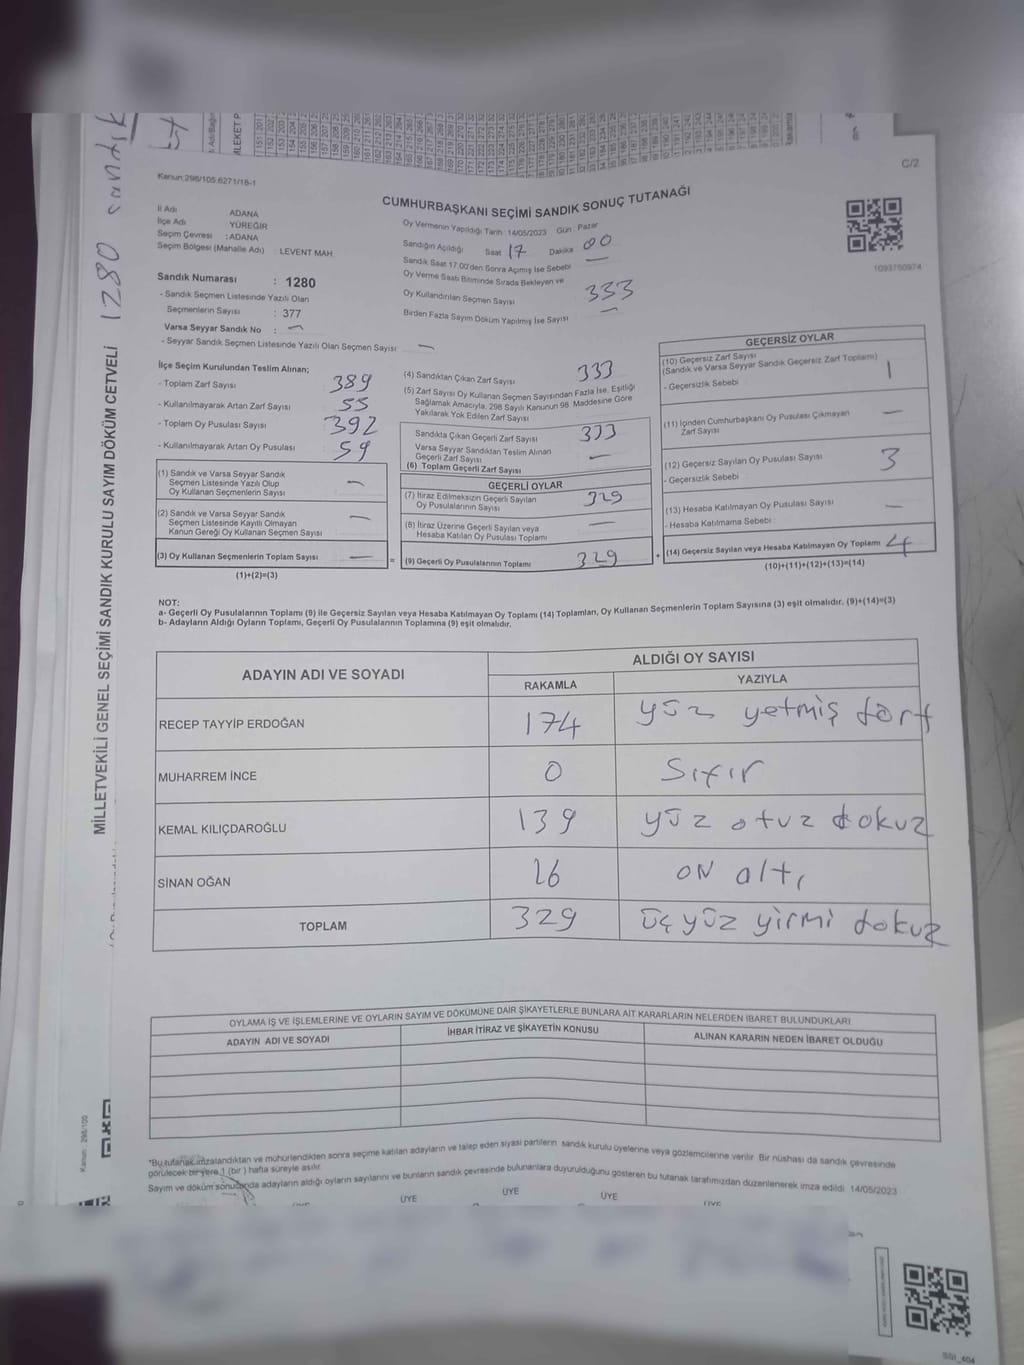 1280 sandık
MİLLETVEKİLİ GENEL SEÇİMİ SANDIK KURULU SAYIM DÖKÜM CETVELİ
Kanun: 298/100
C/2
Kanun:298/105.6271/18-1
CUMHURBAŞKANI SEÇİMİ SANDIK SONUÇ TUTANAĞI
1093750974
İl Adı ADANA
İlçe Adı YÜREĞİR
Seçim Çevresi : ADANA
Seçim Bölgesi (Mahalle Adı) : LEVENT MAH.
Sandık Numarası : 1280
- Sandık Seçmen Listesinde Yazılı Olan
Seçmenlerin Sayısı : 377
Varsa Seyyar Sandık No : —
- Seyyar Sandık Seçmen Listesinde Yazılı Olan Seçmen Sayısı —
Oy Vermenin Yapıldığı Tarih : 14/05/2023 Gün : Pazar
Sandığın Açıldığı Saat 17 Dakika 00
Sandık Saat 17.00'den Sonra Açımış İse Sebebi —
Oy Verme Saati Bitiminde Sırada Bekleyen ve
Oy Kullandırılan Seçmen Sayısı 333
Birden Fazla Sayım Döküm Yapılmış İse Sayısı —
İlçe Seçim Kurulundan Teslim Alınan;
- Toplam Zarf Sayısı 389
- Kullanılmayarak Artan Zarf Sayısı 55
- Toplam Oy Pusulası Sayısı 392
- Kullanılmayarak Artan Oy Pusulası 59
(1) Sandık ve Varsa Seyyar Sandık
Seçmen Listesinde Yazılı Olup
Oy Kullanan Seçmenlerin Sayısı —
(2) Sandık ve Varsa Seyyar Sandık
Seçmen Listesinde Kayıtlı Olmayan
Kanun Gereği Oy Kullanan Seçmen Sayısı —
(3) Oy Kullanan Seçmenlerin Toplam Sayısı —
(1)+(2)=(3)
(4) Sandıktan Çıkan Zarf Sayısı 333
(5) Zarf Sayısı Oy Kullanan Seçmen Sayısından Fazla İse, Eşitliği
Sağlamak Amacıyla, 298 Sayılı Kanunun 98. Maddesine Göre
Yakılarak Yok Edilen Zarf Sayısı
Sandıkta Çıkan Geçerli Zarf Sayısı 333
Varsa Seyyar Sandıktan Teslim Alınan
Geçerli Zarf Sayısı —
(6) Toplam Geçerli Zarf Sayısı
GEÇERLİ OYLAR
(7) İtiraz Edilmeksizin Geçerli Sayılan
Oy Pusulasının Sayısı 329
(8) İtiraz Üzerine Geçerli Sayılan veya
Hesaba Katılan Oy Pusulası Toplamı —
= (9) Geçerli Oy Pusulalarının Toplamı 329 +
GEÇERSİZ OYLAR
(10) Geçersiz Zarf Sayısı
(Sandık ve Varsa Seyyar Sandık Geçersiz Zarf Toplamı) 1
- Geçersizlik Sebebi
(11) İçinden Cumhurbaşkanı Oy Pusulası Çıkmayan
Zarf Sayısı —
(12) Geçersiz Sayılan Oy Pusulası Sayısı 3
- Geçersizlik Sebebi
(13) Hesaba Katılmayan Oy Pusulası Sayısı —
- Hesaba Katılmama Sebebi
(14) Geçersiz Sayılan veya Hesaba Katılmayan Oy Toplamı 4
(10)+(11)+(12)+(13)=(14)
NOT:
a- Geçerli Oy Pusulalarının Toplamı (9) ile Geçersiz Sayılan veya Hesaba Katılmayan Oy Toplamı (14) Toplamları, Oy Kullanan Seçmenlerin Toplam Sayısına (3) eşit olmalıdır. (9)+(14)=(3)
b- Adayların Aldığı Oyların Toplamı, Geçerli Oy Pusulalarının Toplamına (9) eşit olmalıdır.
ADAYIN ADI VE SOYADI ALDIĞI OY SAYISI
RAKAMLA YAZIYLA
RECEP TAYYİP ERDOĞAN 174 yüz yetmiş dört
MUHARREM İNCE 0 Sıfır
KEMAL KILIÇDAROĞLU 139 yüz otuz dokuz
SİNAN OĞAN 16 ON altı
TOPLAM 329 üç yüz yirmi dokuz
OYLAMA İŞ VE İŞLEMLERİNE VE OYLARIN SAYIM VE DÖKÜMÜNE DAİR ŞİKAYETLERLE BUNLARA AİT KARARLARIN NELERDEN İBARET BULUNDUKLARI
ADAYIN ADI VE SOYADI İHBAR İTİRAZ VE ŞİKAYETİN KONUSU ALINAN KARARIN NEDEN İBARET OLDUĞU
*Bu tutanak imzalandıktan ve mühürlendikten sonra seçime katılan adayların ve talep eden siyasi partilerin sandık kurulu üyelerine veya gözlemcilerine verilir. Bir nüshası da sandık çevresinde
görülecek bir yere 1 (bir ) hafta süreyle asılır.
Sayım ve döküm sonucunda adayların aldığı oyların sayılarını ve bunların sandık çevresinde bulunanlara duyurulduğunu gösteren bu tutanak tarafımızdan düzenlenerek imza edildi. 14/05/2023
ÜYE ÜYE ÜYE